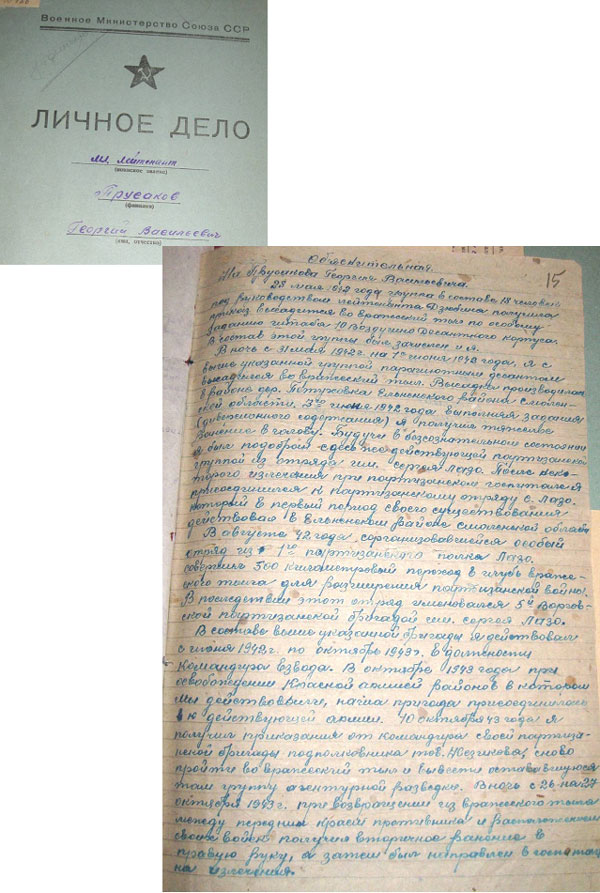 Военное Министерство Союза ССР
ЛИЧНОЕ ДЕЛО
мл. лейтенант
(воинское звание)
Прусаков
(фамилия)
Георгий Васильевич
(имя, отчество)
15
Объяснительная
Прусакова Георгия Васильевича.
28 мая 1942 года группа в составе 18 человек
под руководством лейтенанта получила
приказ высадится во вражеский тыл по особому
заданию штаба 10 Воздушно Десантного корпуса.
В состав этой группы был зачислен и я.
В ночь с 31 мая 1942 г. на 1 июня 1942 года, я с
выше указанной группой парашютным десантом
высадился во вражеский тыл. Высадка производилась
в районе дер. Петуховка Ельнинского района Смолен-
ской области. 3го июня 1942 года выполняя задания
(диверсионного содержания) я получил тяжелое
ранение в голову. Будучи в бессознательном состоянии
я был подобран здесь же действующей партизанской
группой из отряда им. Сергея Лазо. После неко-
торого излечения при партизанском госпитале я
присоединился к партизанскому отряду С. Лазо,
который в первый период своего существования
действовал в Ельнинском районе Смоленской области
В августе 42 года, сорганизовавшейся особый
отряд из 1го партизанского полка Лазо.
совершил 500 километровый переход в глубь враже-
ского тыла для расширения партизанской войны.
В последствии этот отряд именовался 5й Воргов-
ской партизанской бригадой им. Сергея Лазо.
В составе выше указанной бригады я действовал
с июня 1942 г. по октябрь 1943 г. в должности
Командира взвода. В октябре 1943 года при
освобождении Красной армией районов в котором
мы действовали, наша бригада присоединилась
к действующей армии. 10 октября 43 года я
получил приказания от командира своей партиза-
нской бригады подполковника тов. снова
пройти во вражеский тыл и вывести оставшуюся
там группу агентурной разведки. В ночь с 26 на 27
октября 1943 г. при возвращении из вражеского тыла
между передним краем противника и расположением
своих войск получил вторичное ранение в
правую руку, а затем был направлен в госпиталь
на излечения.